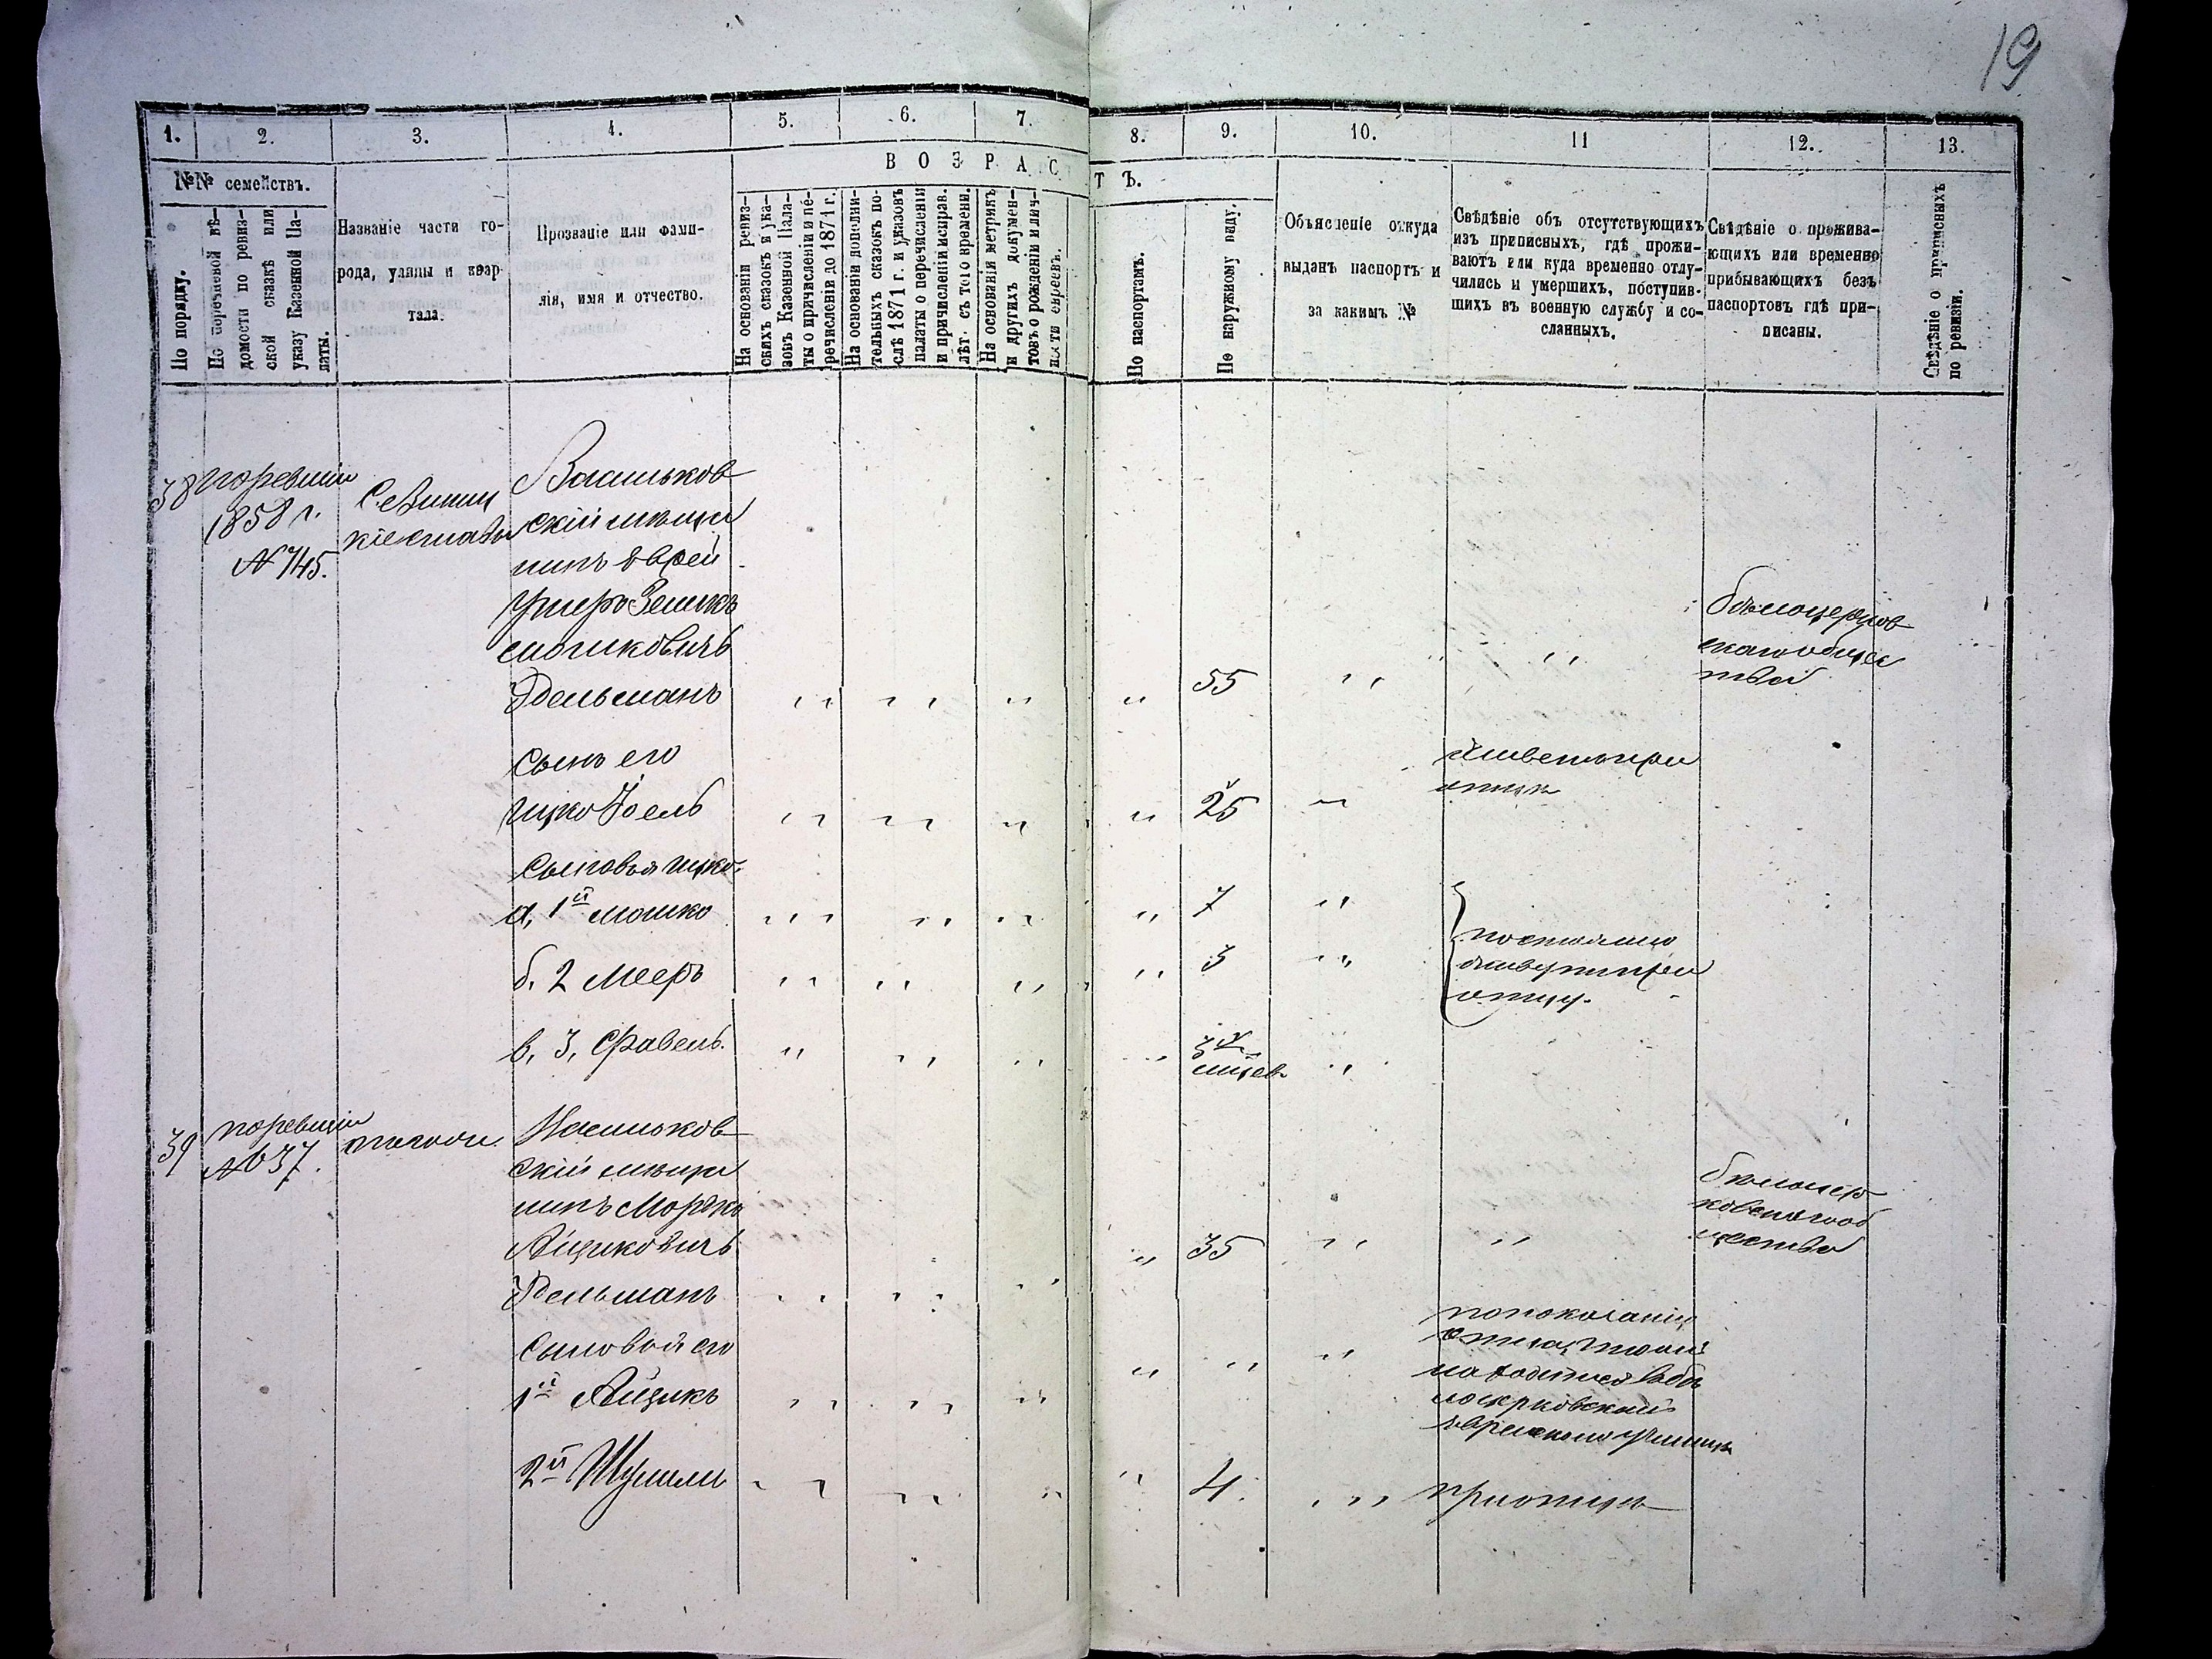 19
1. 2. 3. 4. 5. 6. 7. 8. 9. 10. 11 12. 13.
№№ семействъ.
По порядку.
По перечневой вѣ-
домости по ревиз-
ской сказкѣ или
указу Казенной Па-
латы.
Названіе части го-
рода, улицы и квар-
тала.
Прозваніе или фами-
лія, имя и отчество.
ВОЗРАСТЪ.
На основаніи ревиз-
скихъ сказокъ и ука-
зовъ Казенной Пала-
ты о причисленіи и пе-
речисленіи до 1871 г.
На основаніи дополни-
тельныхъ сказокъ по-
слѣ 1871 г. и указовъ
палаты о перечисленіи
и причисленіи исправ.
лѣт. съ того времени.
На основаніи метрикъ
и другихъ докумен-
товъ о рожденіи и лич-
ности евреевъ.
По паспортамъ.
По наружному виду.
Объясненіе откуда
выданъ паспортъ и
за какимъ №
Свѣдѣніе объ отсутствующихъ
изъ приписныхъ, гдѣ прожи-
ваютъ или куда временно отлу-
чились и умершихъ, поступив-
шихъ въ военную службу и со-
сланныхъ.
Свѣдѣніе о прожива-
ющихъ или временно
прибывающихъ безъ
паспортовъ гдѣ при-
писаны.
Свѣдѣніе о приписныхъ
по ревизіи.
38 поревизіи
1858 г.
№ 745.
Васильков
скій мѣща
нинъ Еврей
Зеликъ
Мошковичъ
Эдельманъ
55
Бѣлоцерков
скаго общес
тва
Сынъ его
Ицко Іоель
25
живетъ при
отцѣ
Сыновья Ицко.
а, 1й Мошко
7
б. 2 Мееръ
3
постоянно
живут при
отцу.
в, 3,
3х
мѣсев
39 поревизіи
№ 637.
Васильков
скій мѣща
нинъ Мордко
Айзиковичъ
Эдельманъ
35
бѣлоцер
ковскаго об
щества
Сыновья его
1й Айзикъ
по показанію
отца,
находится въ бѣ
лоцерковскомъ
еврейскомъ училищѣ
2й Шулимъ
4.
при отцѣ